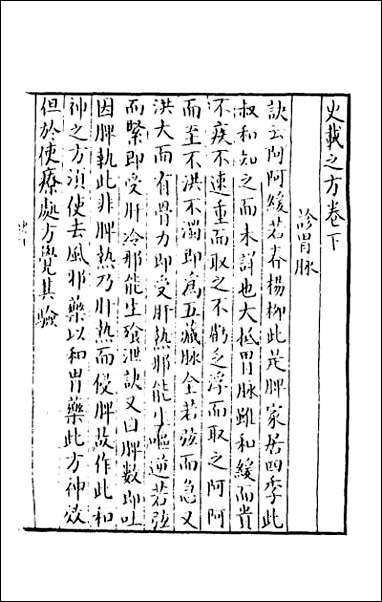 史載之方卷下
診胃脉
訣云阿阿緩若春楊柳此是脾家居四季此
叔和知之而未詳也大抵胃脉雖和緩而貴
不疾不速重而取之不䏿乏浮而取之阿阿
而至不洪不濁即為五藏脉全若弦而急又
洪大而有骨力即受肝熱邪能生嘔逆若弦
而緊即受肝冷邪能生飱泄訣又曰脾數即吐
因脾執此非脾熱乃肝熱而侵脾故作此和
神之方須使去風邪藥以和胃藥此方神效
但於使療處方覺其驗